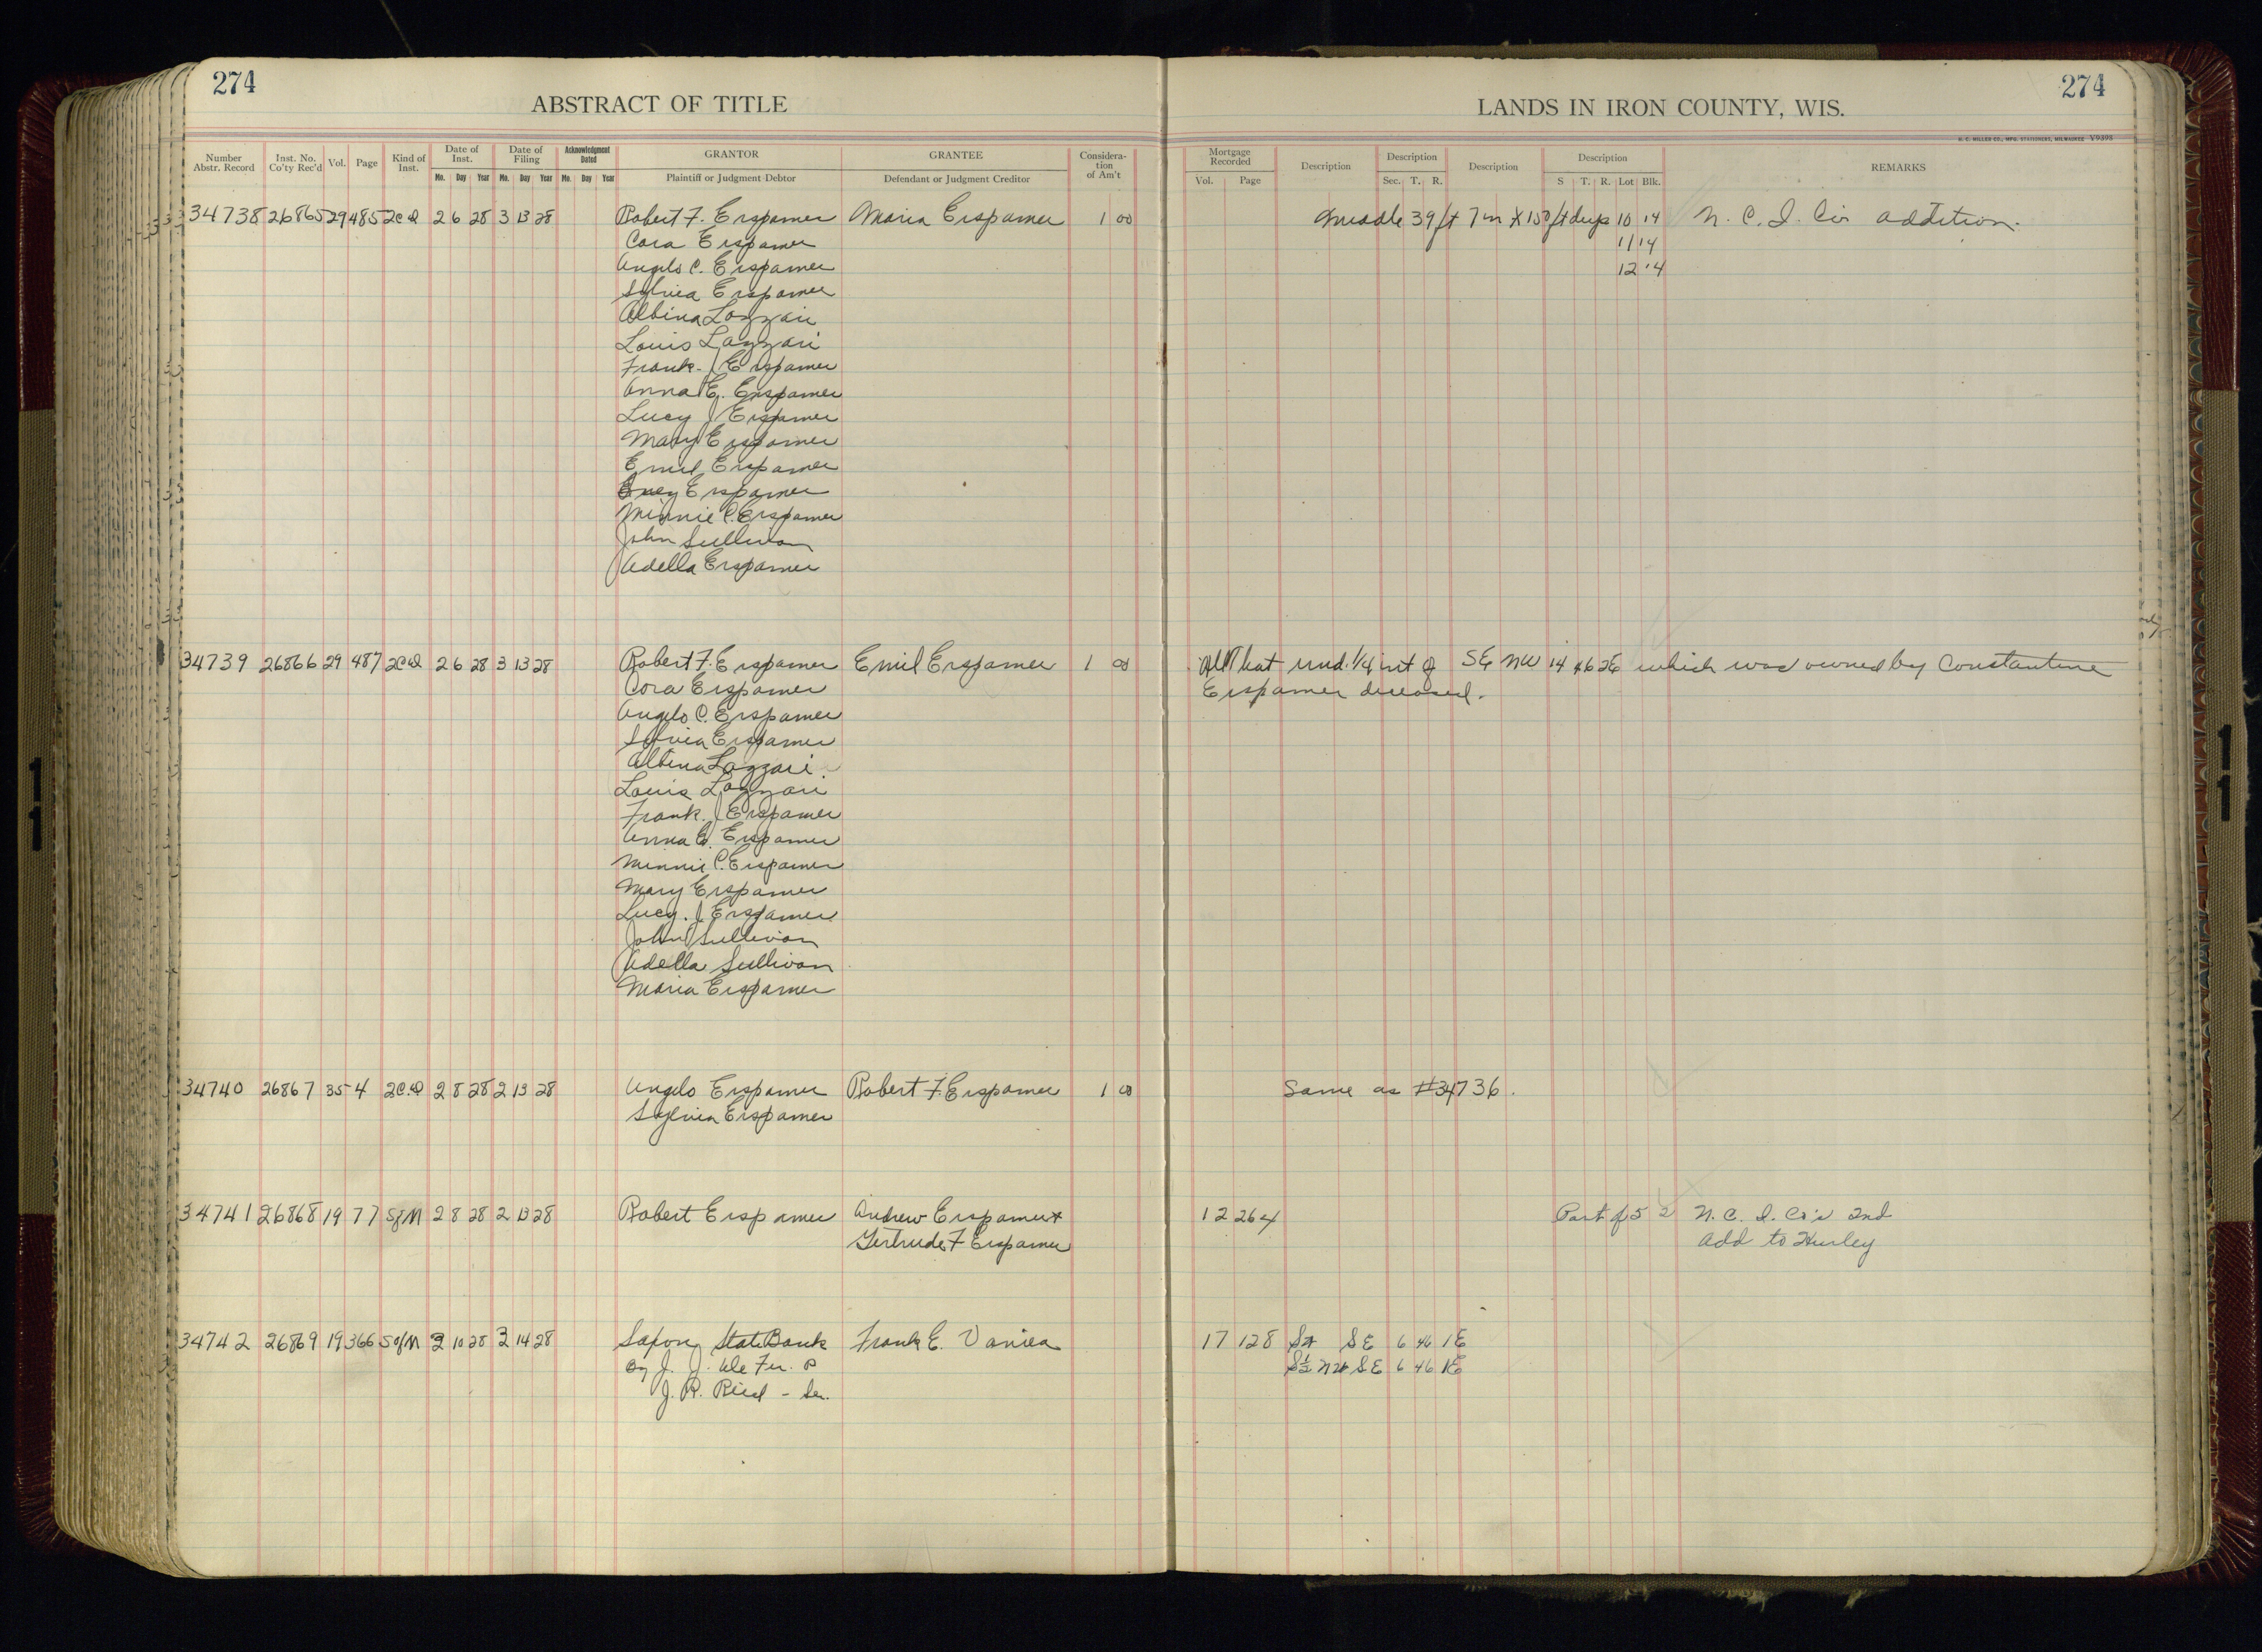 274
ABSTRACT OF TITLE
274
LANDS IN IRON COUNTY, WIS.
H. C. MILLER CO., MFG. STATIONERS, MILWAUKEE V9398
Number Abstr. Record | Inst. No. Co'ty Rec'd | Vol. | Page | Kind of Inst. | Date of Inst. Mo. Day Year | Date of Filing Mo. Day Year | Acknowledgment Dated Mo. Day Year | GRANTOR Plaintiff or Judgment Debtor | GRANTEE Defendant or Judgment Creditor | Consideration of Am't | Mortgage Recorded Vol. Page | Description | Description Sec. T. R. | Description | Description S T. R. Lot Blk. | REMARKS
34738 26865 29 485 2CD 2 6 28 3 13 28 Robert F. Erspamer Maria Erspamer 1 00 Middle 39 ft 7 in X 150 ft deep 10 14 N. C. I. Co's addition.
Cora Erspamer 11 14
Angelo C. Erspamer 12 14
Sylvia Erspamer
Albina Lazzari
Louis Lazzari
Frank J Erspamer
Anna E. Erspamer
Lucy J Erspamer
Mary Erspamer
Emil Erspamer
Erspamer
Minnie C. Erspamer
John Sullivan
Adella Erspamer
34739 26866 29 487 2CD 2 6 28 3 13 28 Robert F. Erspamer Emil Erspamer 1 00 All that und. 1/4 int of SE NW 14 46 2E which was owned by Constantine
Cora Erspamer Erspamer deceased.
Angelo C. Erspamer
Sylvia Erspamer
Albina Lazzari
Louis Lazzari
Frank J Erspamer
Anna E. Erspamer
Minnie C. Erspamer
Mary Erspamer
Lucy. J Erspamer
John Sullivan
Adella Sullivan
Maria Erspamer
34740 26867 35 4 2CD 2 8 28 2 13 28 Angelo Erspamer Robert F. Erspamer 1 00 Same as #34736.
Sylvia Erspamer
34741 26868 19 77 SofM 2 8 28 2 13 28 Robert Erspamer Andrew Erspamer + 12 264 Part of 5 2 N. C. I. Co's 2nd
Gertrude F Erspamer Add to Hurley
34742 26869 19 366 SofM 2 10 28 2 14 28 Saxon State Bank Frank E. Vanica 17 128 SW SE 6 46 1E
By J. J. S½ NW SE 6 46 1E
J. R. Reid - Sec.